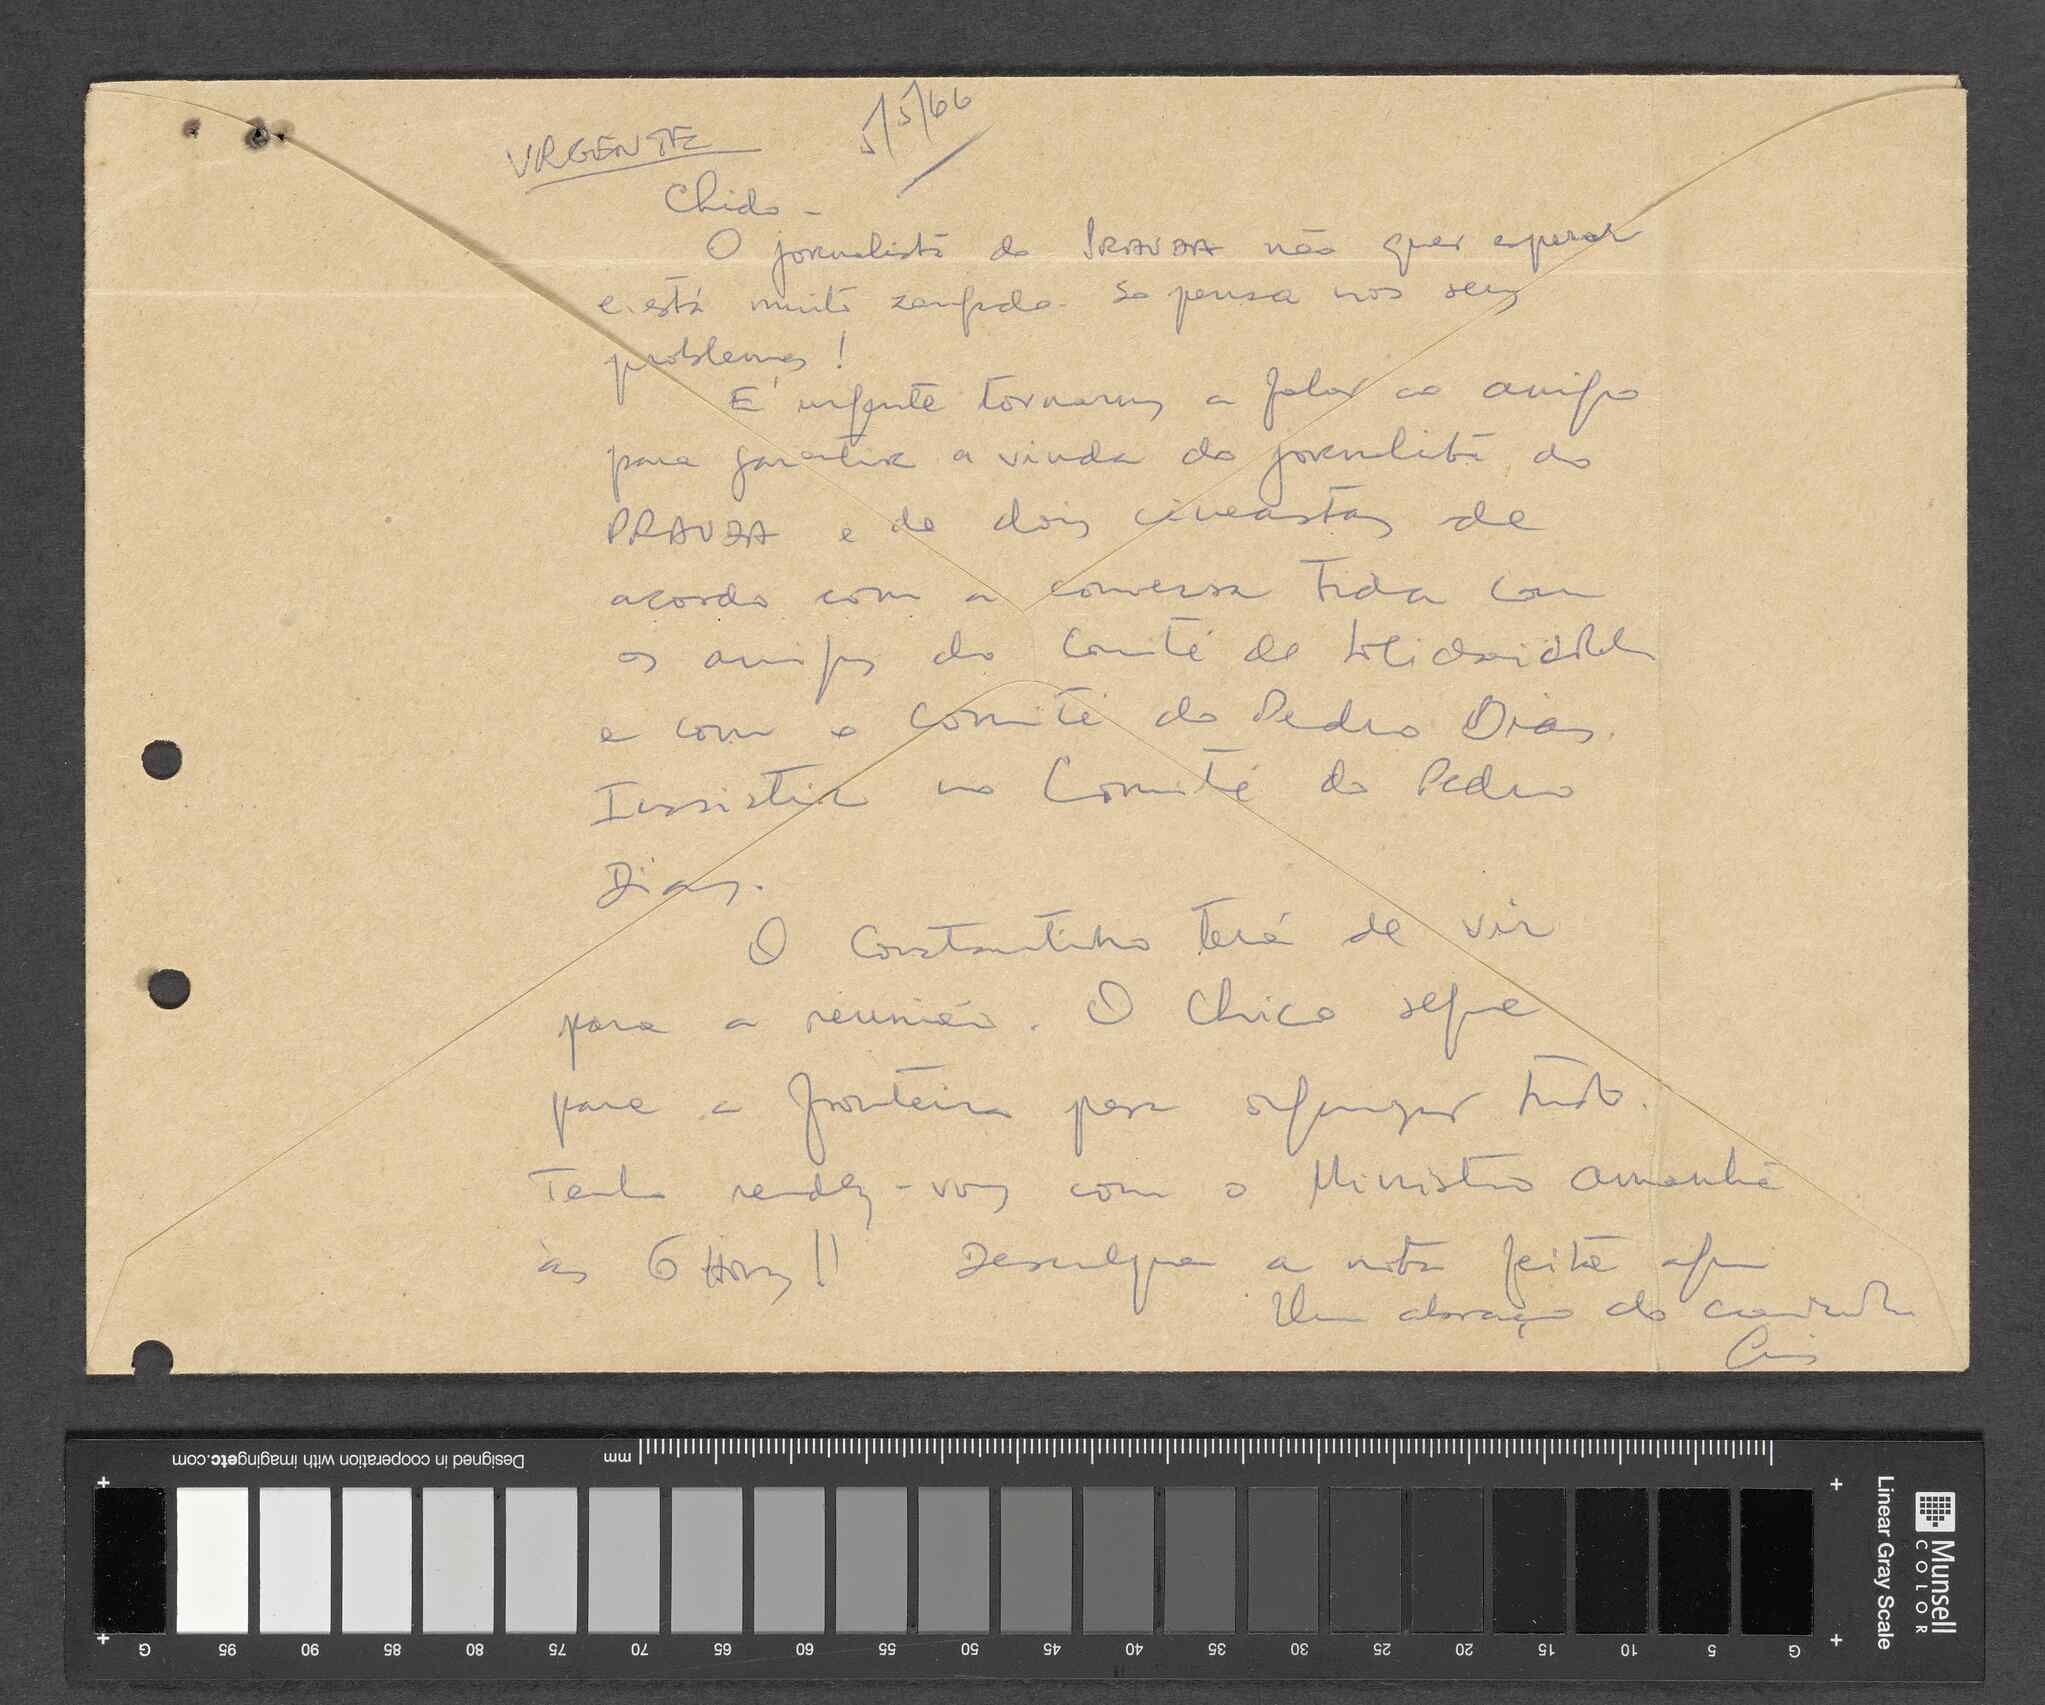 URGENTE 5/5/66
Chido -
O jornalista do PRAVDA não quer esperar
e está muito zangado. Só pensa nos seus
problemas!
É urgente tornarmos a falar ao amigo
para garantir a vinda do jornalista do
PRAVDA e de dois cineastas de
acordo com a conversa tida com
os amigos do Comité de Solidariedade
e com o Comité do Pedro Dias.
Insistir no Comité do Pedro
Dias.
O Constantino terá de vir
para a reunião. O Chico segue
para a fronteira para organizar tudo.
Tenho rendez-vous com o Ministro amanhã
às 6 Horas!! Desculpa a nota feita aqui
Um abraço do camarada
Designed in cooperation with imagingetc.com
mm
G 95 90 85 80 75 70 65 60 55 50 45 40 35 30 25 20 15 10 5 G
Munsell
COLOR
Linear Gray Scale